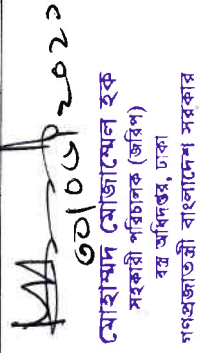 ৩০/০৮/২০২০
মোহাম্মদ মোজাম্মেল হক
সহকারী পরিচালক (জরিপ)
বস্ত্র অধিদপ্তর, ঢাকা
গণপ্রজাতন্ত্রী বাংলাদেশ সরকার